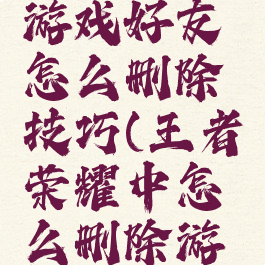 游戏好友
怎么删除
技巧(王者
荣耀中怎
么删除游